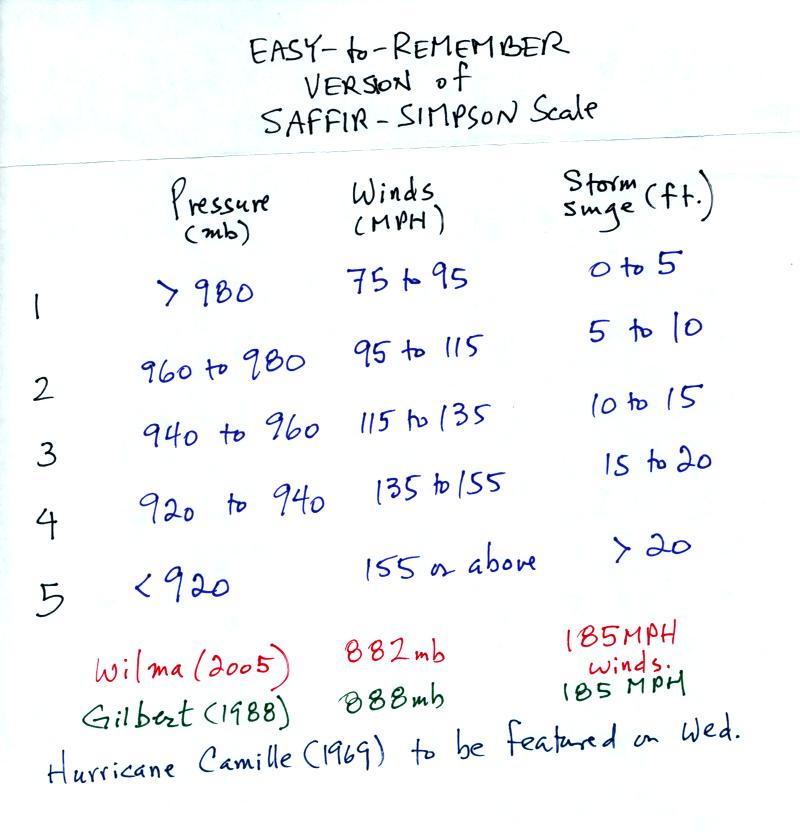 EASY-to-REMEMBER
VERSION of
SAFFIR-SIMPSON Scale
Pressure (mb) Winds (MPH) Storm surge (ft.)
1 > 980 75 to 95 0 to 5
2 960 to 980 95 to 115 5 to 10
3 940 to 960 115 to 135 10 to 15
4 920 to 940 135 to 155 15 to 20
5 < 920 155 or above > 20
Wilma (2005) 882mb 185MPH winds.
Gilbert (1988) 888mb 185 MPH
Hurricane Camille (1969) to be featured on Wed.